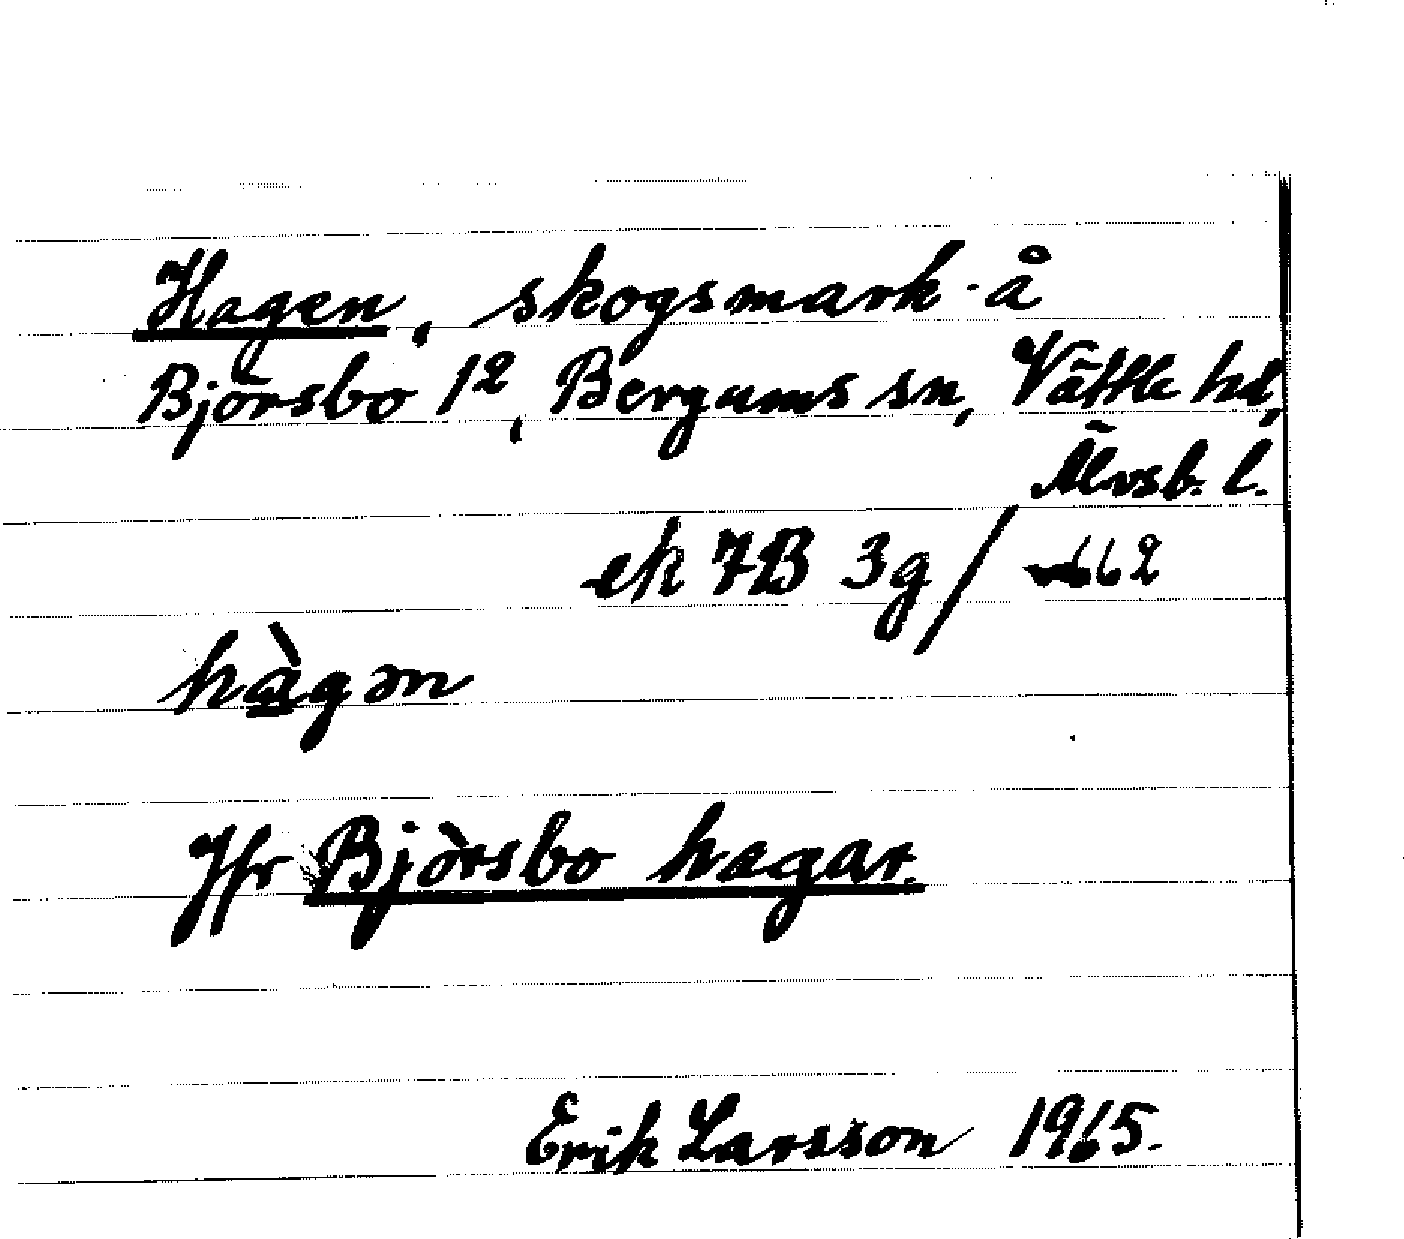 Hagen, skogsmark å
Björsbo 1², Bergums sn, Vättle hd,
Älvsb. l.
ek 7B 3g/ 662
hàgən
Jfr Björsbo hagar.
Erik Larsson 1965.